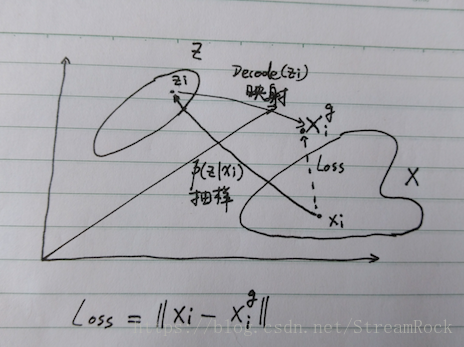 Z
zi
Decode(zi)
映射
Xi^g
p(z|xi)
抽样
Loss
X
xi
Loss = ||xi - xi^g||
https://blog.csdn.net/StreamRock